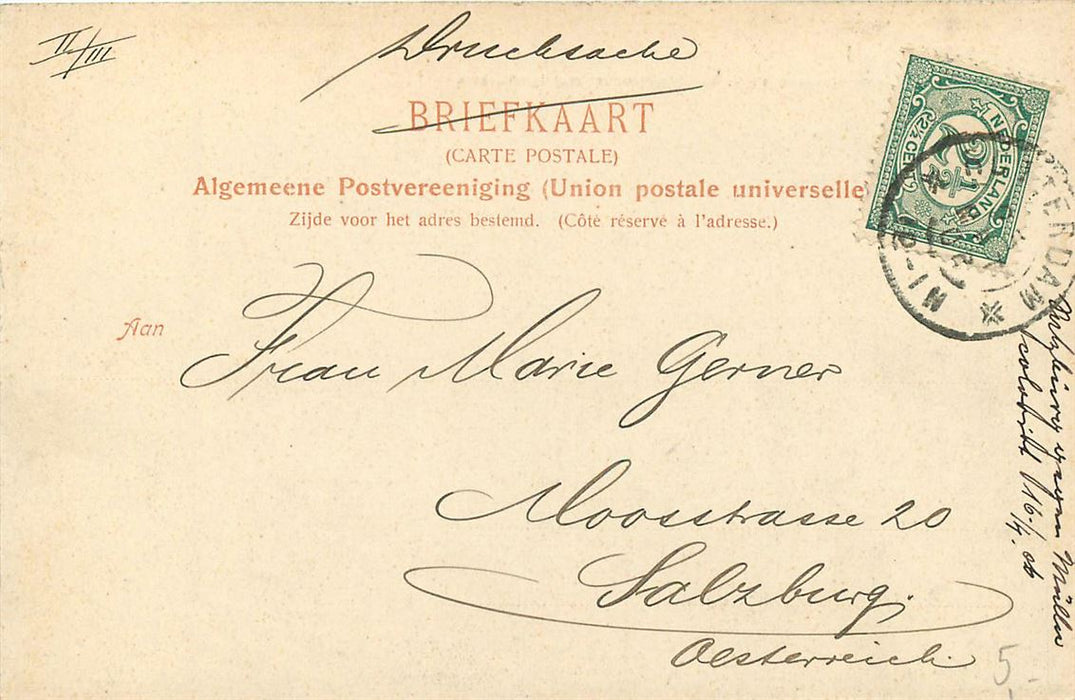 II/III
Drucksache
BRIEFKAART
(CARTE POSTALE)
Algemeene Postvereeniging (Union postale universelle)
Zijde voor het adres bestemd. (Côté réservé à l'adresse.)
NEDERLAND
2½ CENT
2½
TERDAM
Aan
Frau Marie Gerner
Moosstrasse 20
Salzburg.
Oesterreich.
Müller
16./4. 06
5-